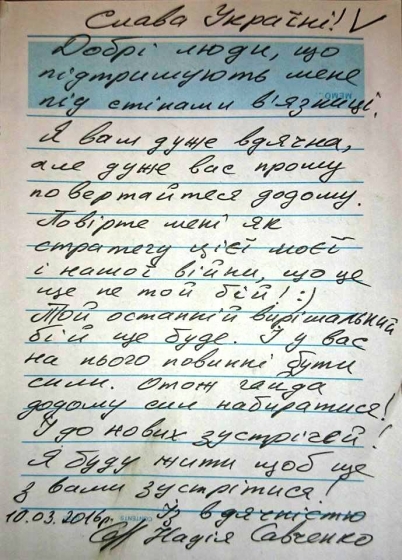 Слава Україні!
Добрі люди, що
підтримують мене
MEMO
під стінами в'язниці,
Я вам дуже вдячна,
але дуже вас прошу
повертайтеся додому.
Повірте мені як
стратегу цієї моєї
і нашої війни, що це
ще не той бій! :)
Той останній вирішальний
бій ще буде. І у вас
на нього повинні бути
сили. Отож гайда
додому сил набиратися!
І до нових зустрічей!
Я буду жити щоб ще
з вами зустрітися!
10.03.2016р. CONTENTS Із вдячністю
Надія Савченко